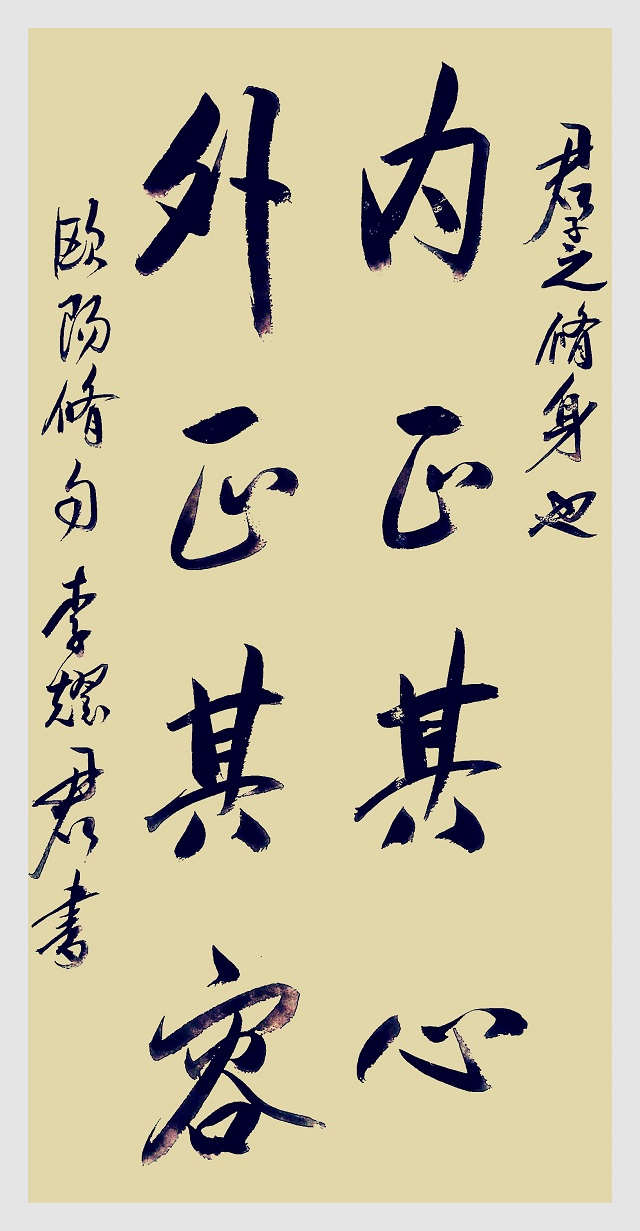 君子之脩身也
内正其心
外正其容
欧陽脩句 李耀君书